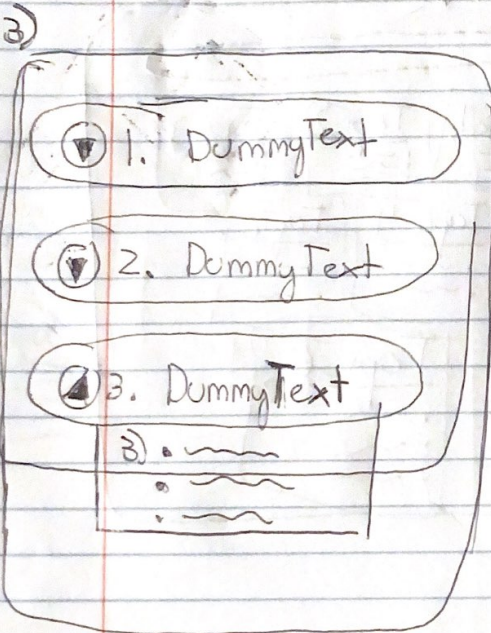 3)
1. DummyText
2. DummyText
3. DummyText
3) •
•
•